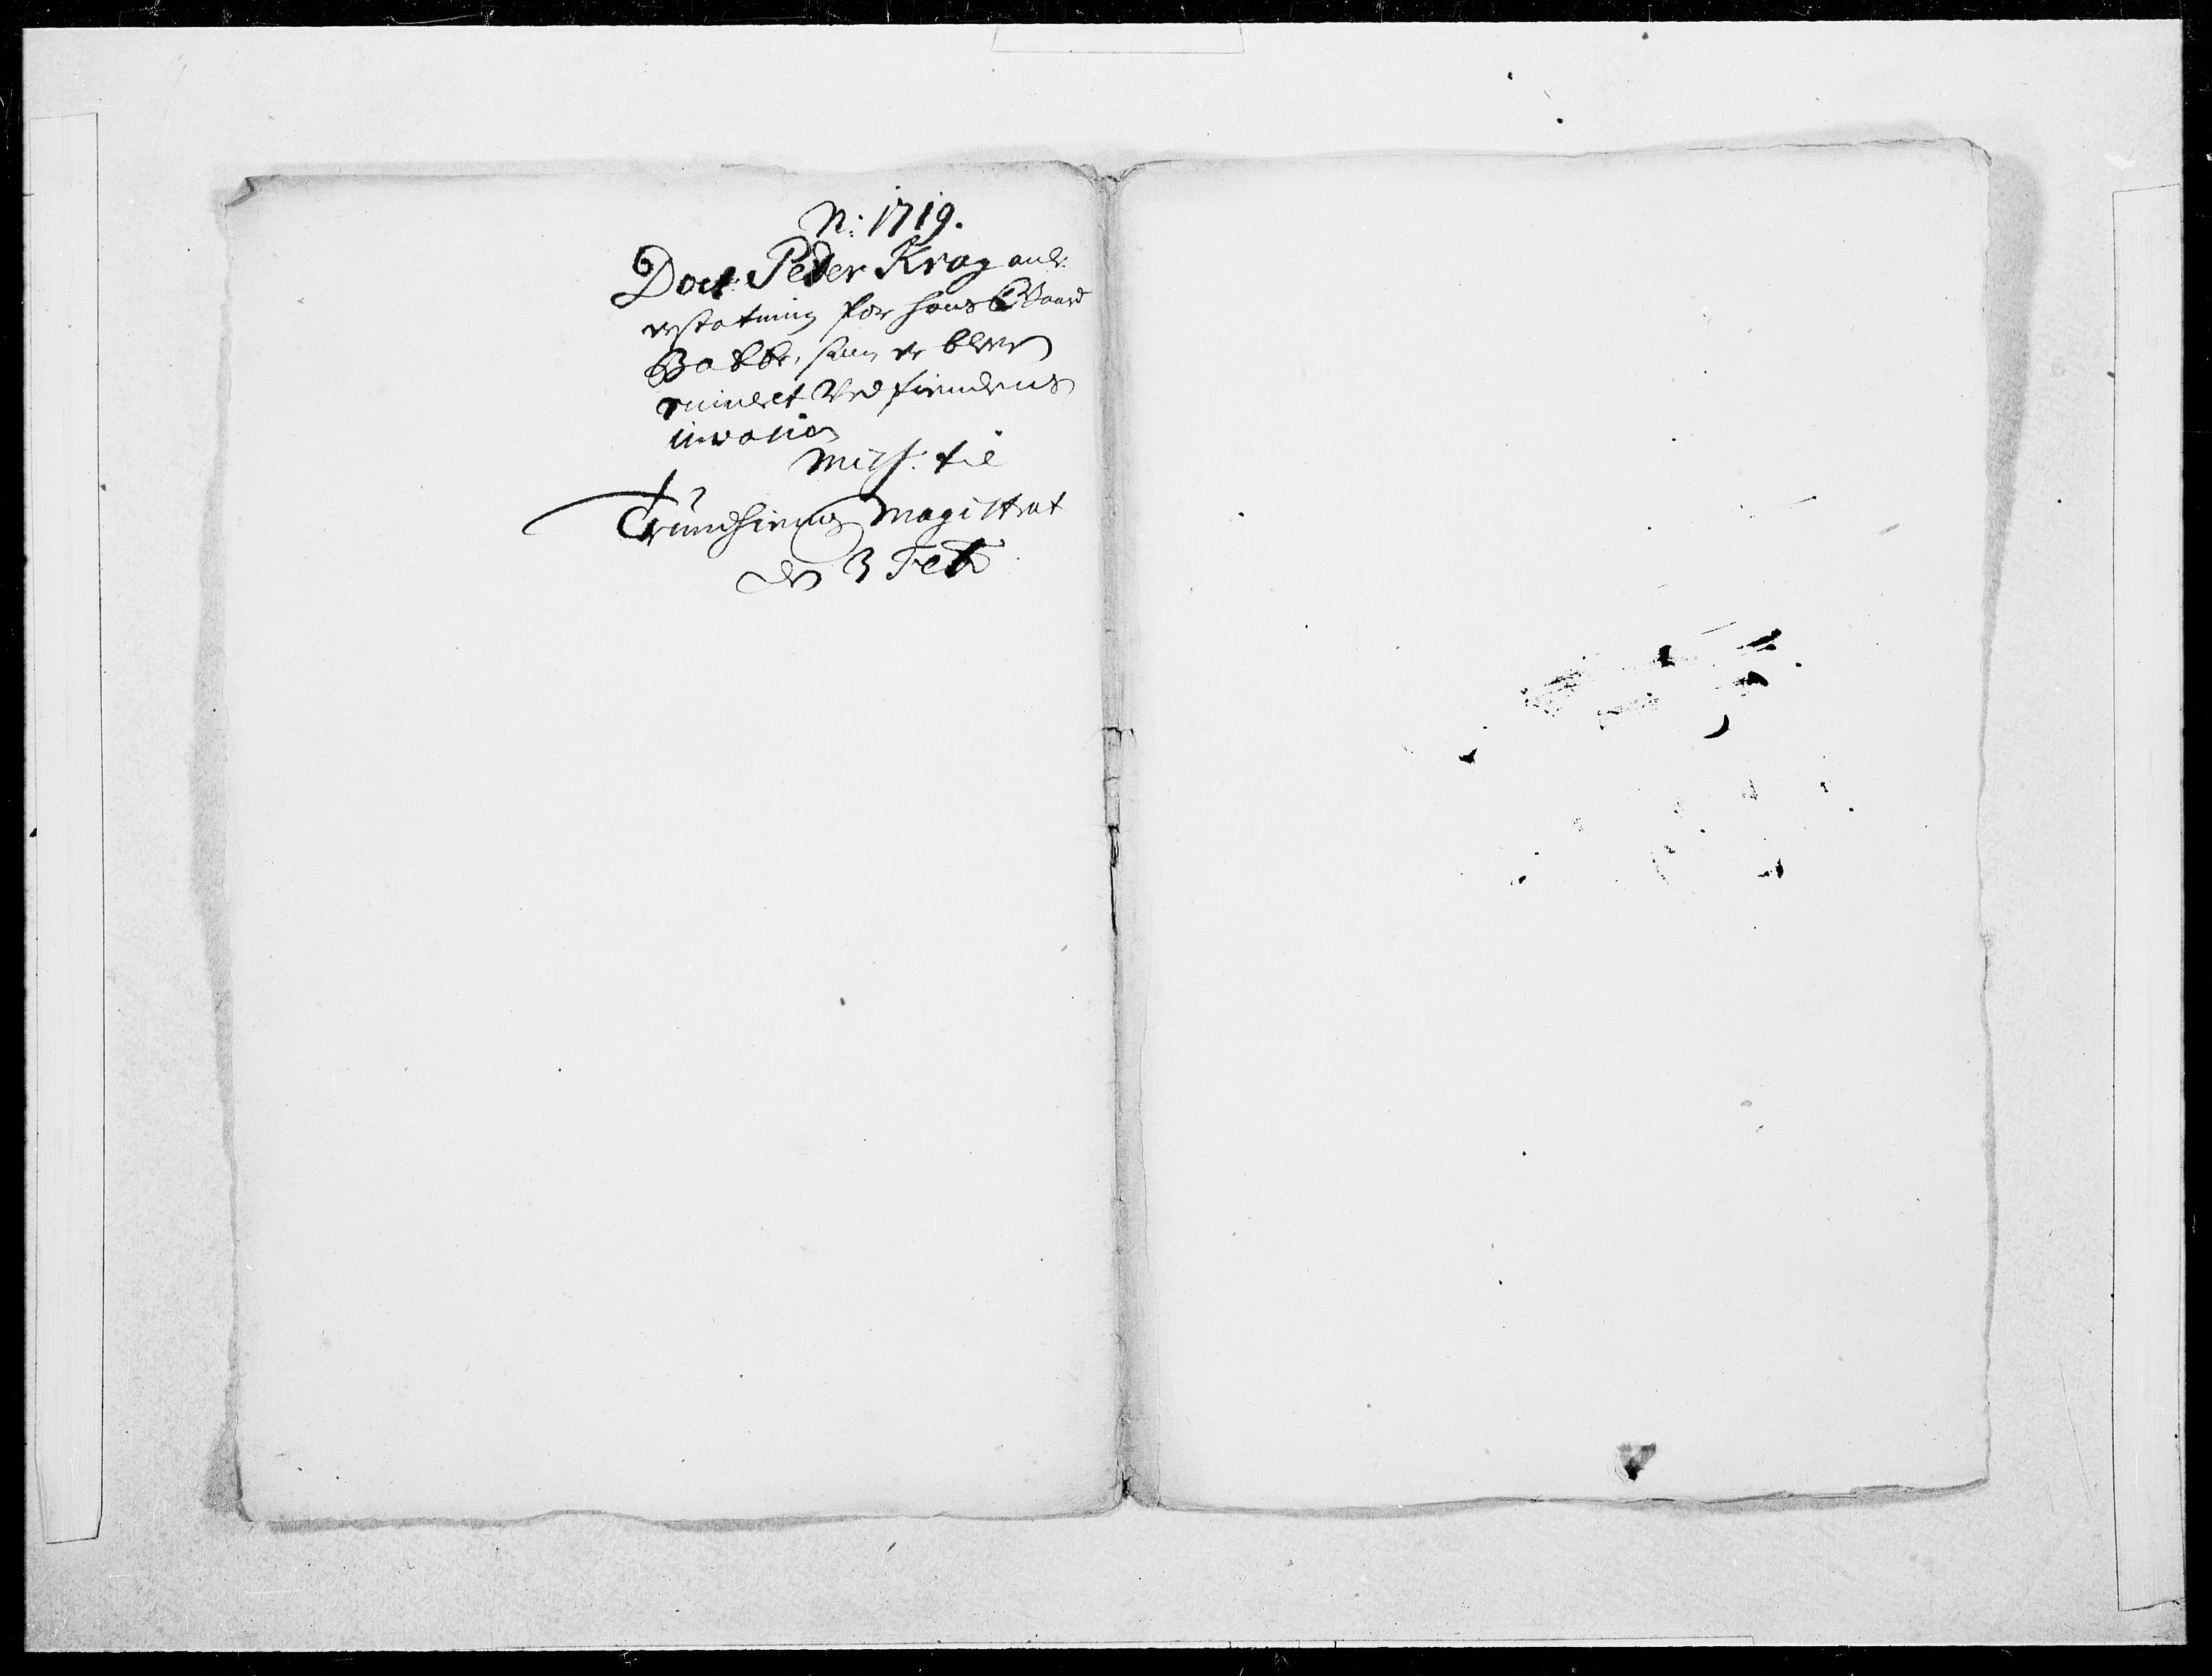 N: 1719.
Doct Peter Krog anl:
erstatning for hans Gaard
Bakke, som er blevet
ruineret Ved fiendens
invasion
Miss. til
Trundhiems Magistrat
den 3 Feb